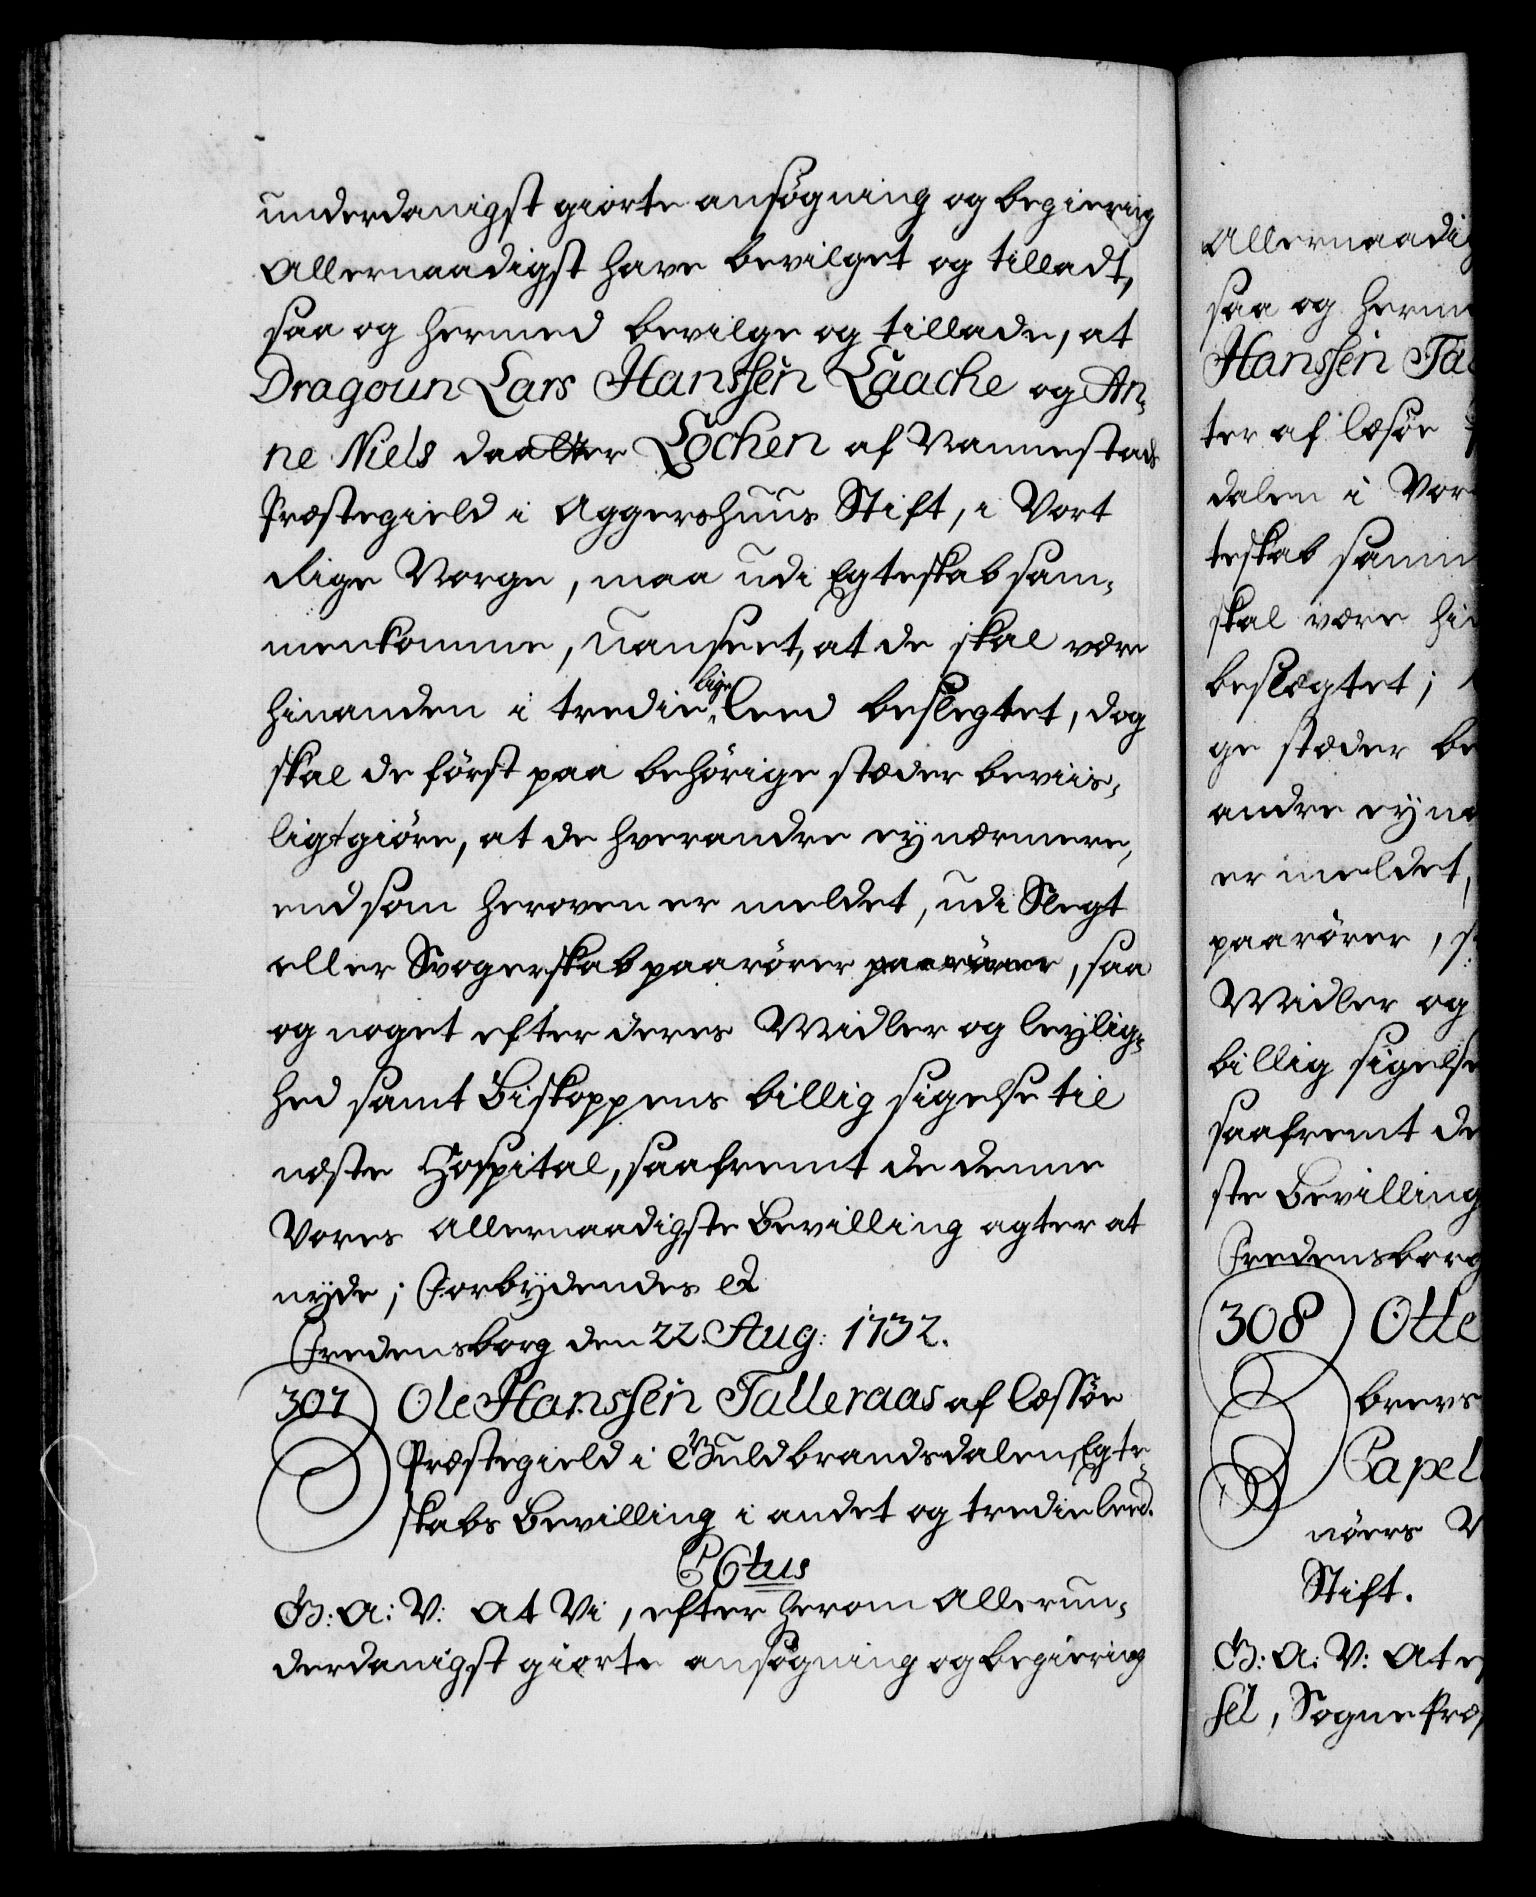 underdanigst giorte ansøgning og begiering
Allernaadigst have bevilget og tilladt,
saa og hermed bevilge og tillade, at
Dragoun Lars Hanssen Laache og An-
ne Niels daatter Lochen af Vannestads
Præstegield i Aggershuus Stift, i Vort
Rige Norge, maa udi Egteskab sam-
menkomme, uanseet, at de skal være
hinanden i tredie lige leed beslegtet, dog
skal de först paa behörige stæder beviis-
ligtgiöre, at de hverandre ey nærmere,
end som heroven er meldet, udi Slegt
eller Svogerskab paarörer paarörer, saa
og noget efter deres Midler og leylig-
hed samt Biskoppens billig sigelse til
næste Hospital, saafremt de denne
Vores Allernaadigste Bevilling agter at
nyde; Forbydendes &
Fredensborg den 22. Aug: 1732.
307 Ole Hanssen Talleraas af Læssöe
Præstegield i Guldbrandsdalen, Egte-
skabs Bevilling i andet og tredie leed.
C 6tus
G: A: V: At Vi, efter herom Allerun-
derdanigst giorte ansøgning og begiering
Allernaadig
saa og herme
Hanssen Tal
ter af læsöe
dalen i Vor
teskab samm
skal være hi
beslægtet;
ge stæder be
andre ey næ
er meldet,
paarörer, s
Midler og
billig sigelse
saafremt de
ste Bevilling
Fredensborg
308 Otte
brevs
Capel
nöers V
Stift.
G: A: V: At e
sel, Sogne Præs